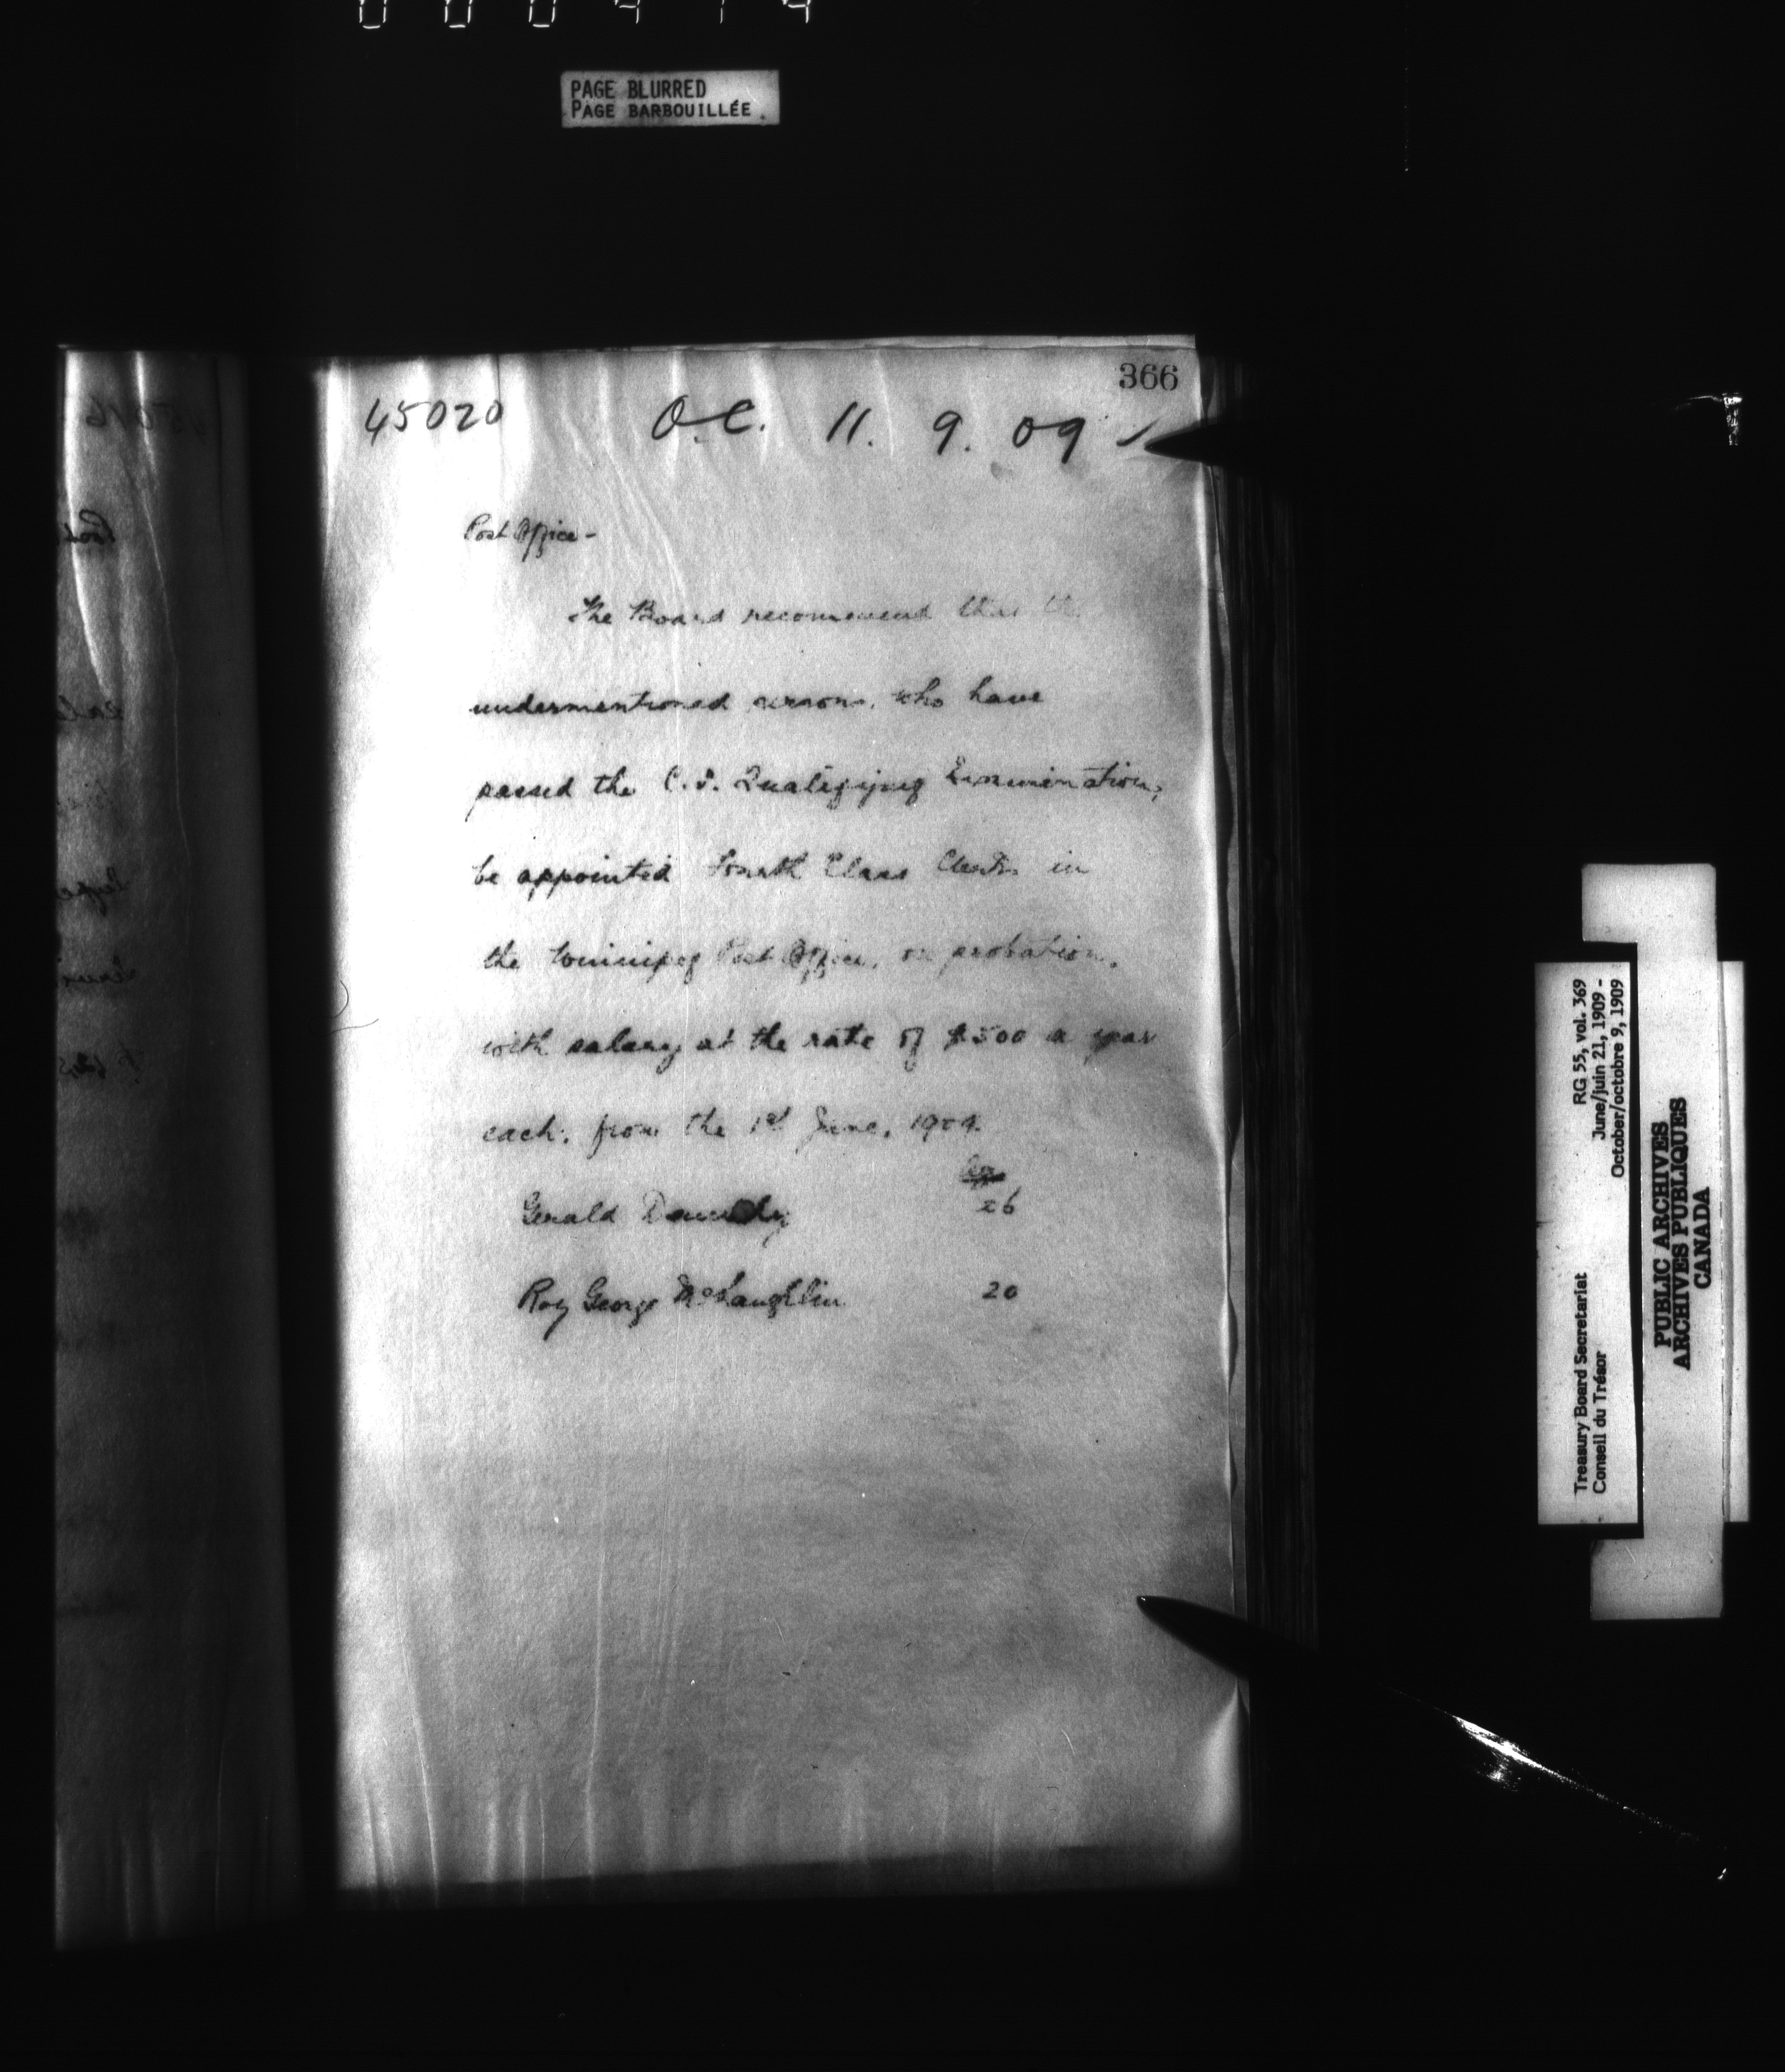 PAGE BLURRED
PAGE BARBOUILLÉE
366
45020 O.C. 11. 9. 09
Post Office -
The Board recommend that the
undermentioned persons, who have
passed the C.S. Qualifying Examination,
be appointed Fourth Class Clerks in
the Winnipeg Post Office, on probation,
with salary at the rate of $500 a year
each, from the 1st June, 1909.
Age
Gerald 26
Roy George McLaughlin 20
Treasury Board Secretariat RG 55, vol. 369
Conseil du Trésor June/juin 21, 1909 -
October/octobre 9, 1909
PUBLIC ARCHIVES
ARCHIVES PUBLIQUES
CANADA